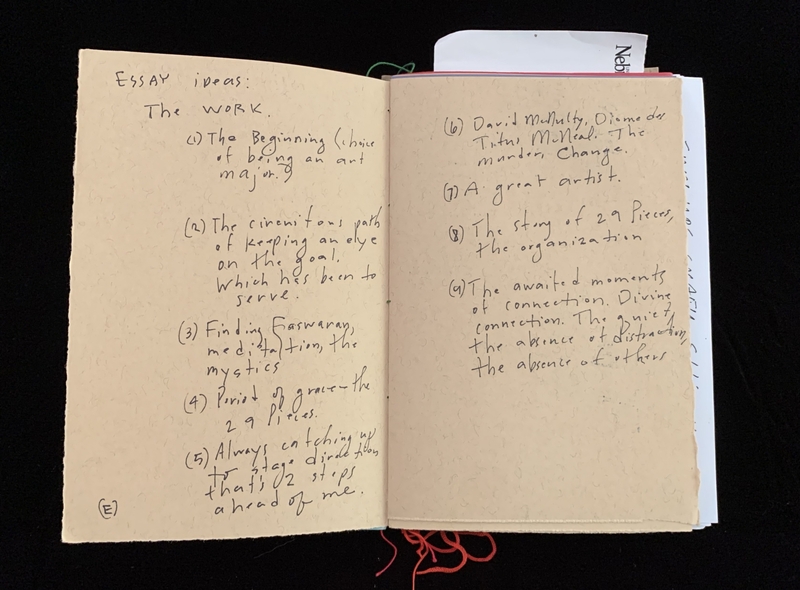 ESSAY iDEAS:
The WORK.
(1) The Beginning (choice
of being an art
major.)
(2) The circuitous path
of keeping an eye
on the goal.
Which has been to
serve.
(3) Finding Easwaran,
meditation, the
mystics
(4) Period of grace – the
29 Pieces.
(5) Always catching up
to stage direction
that's 2 steps
ahead of me.
(E)
(6) David McNulty, Diomedes
Titus McNeal. The
murder, Change.
(7) A great artist.
(8) The story of 29 Pieces,
the organization
(9) The awaited moments
of connection. Divine
connection. The quiet,
the absence of distraction,
the absence of others
Neb